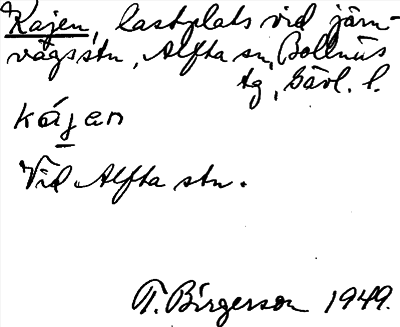 Kajen, lastplats vid järn-
vägsstn, Alfta sn, Bollnäs
tg, Gävl. l.
kájen
Vid Alfta stn.
T. Birgerson 1949.